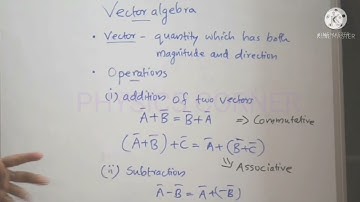 Vector algebra
• Vector - quantity which has both
magnitude and direction
• Operations
(i) addition of two vectors
A̅ + B̅ = B̅ + A̅ ⇒ Commutative
(A̅ + B̅) + C̅ = A̅ + (B̅ + C̅)
⇒ Associative
(ii) Subtraction
A̅ - B̅ = A̅ + (-B̅)